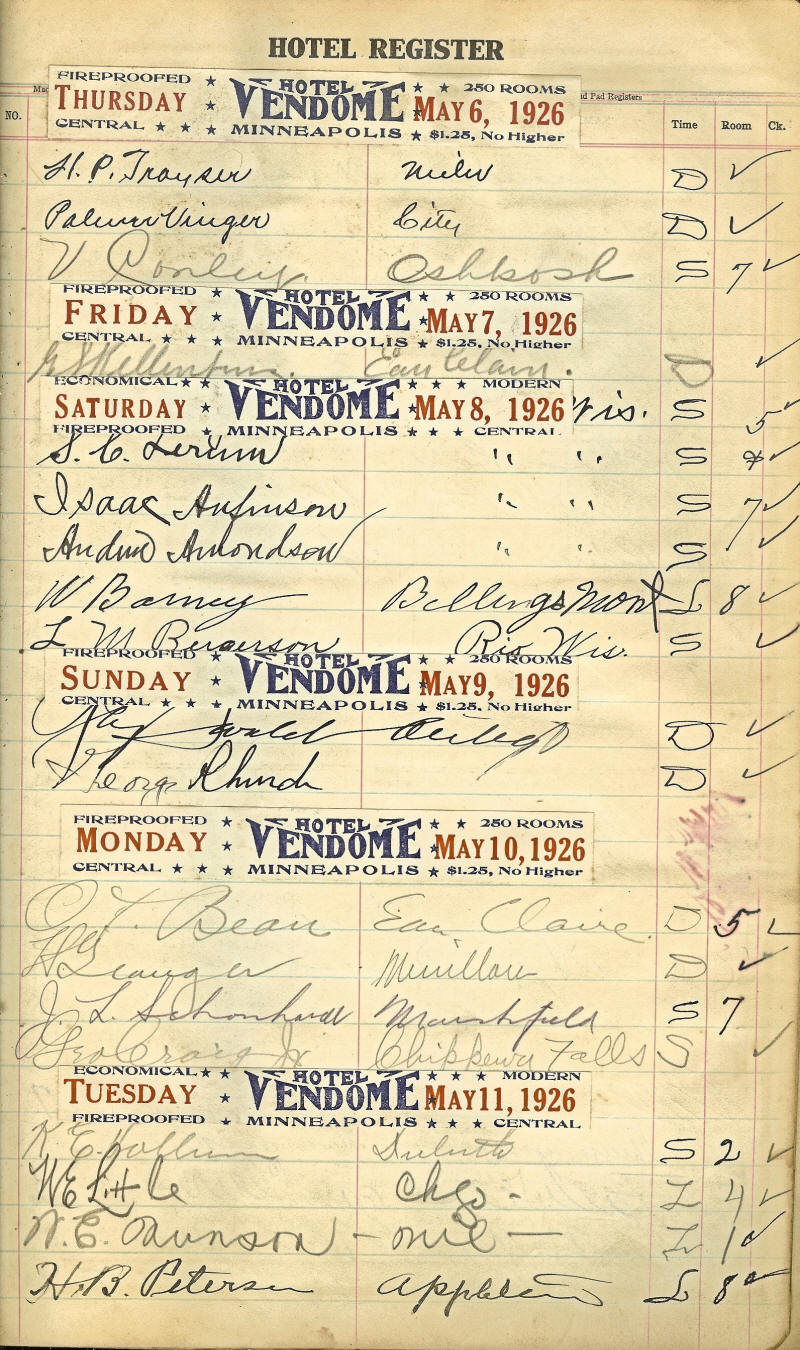 HOTEL REGISTER
nd Pad Registers
NO. Time Room Ck.
FIREPROOFED HOTEL 250 ROOMS
THURSDAY VENDOME MAY 6, 1926
CENTRAL MINNEAPOLIS $1.25, No Higher
H. P. Trayser D ✓
Palmer Vinger City D ✓
V Conley Oshkosh S 7 ✓
FIREPROOFED HOTEL 250 ROOMS
FRIDAY VENDOME MAY 7, 1926
CENTRAL MINNEAPOLIS $1.25, No Higher
Eau Clair. D ✓
ECONOMICAL HOTEL MODERN
SATURDAY VENDOME MAY 8, 1926 Wis. S 5 ✓
FIREPROOFED MINNEAPOLIS CENTRAL
S. C. " " S ✓
Isaac Anfinson " " S 7 ✓
Amondson " " S ✓
W Barney Billings Mont L 8 ✓
L M Bergerson Rio Wis. S ✓
FIREPROOFED HOTEL 250 ROOMS
SUNDAY VENDOME MAY 9, 1926
CENTRAL MINNEAPOLIS $1.25, No Higher
D ✓
George D ✓
FIREPROOFED HOTEL 250 ROOMS
MONDAY VENDOME MAY 10, 1926
CENTRAL MINNEAPOLIS $1.25, No Higher
O. T. Bean Eau Claire. D 5 ✓
D ✓
J. L. Schonhardt Marshfield S 7
Geo Craig Jr Chippewa Falls S ✓
ECONOMICAL HOTEL MODERN
TUESDAY VENDOME MAY 11, 1926
FIREPROOFED MINNEAPOLIS CENTRAL
K. E. Duluth S 2 ✓
W E Little Chgo - L 4 ✓
W. E. Munson - mil - L 1 ✓
H. B. Petersen Appleton L 8 ✓